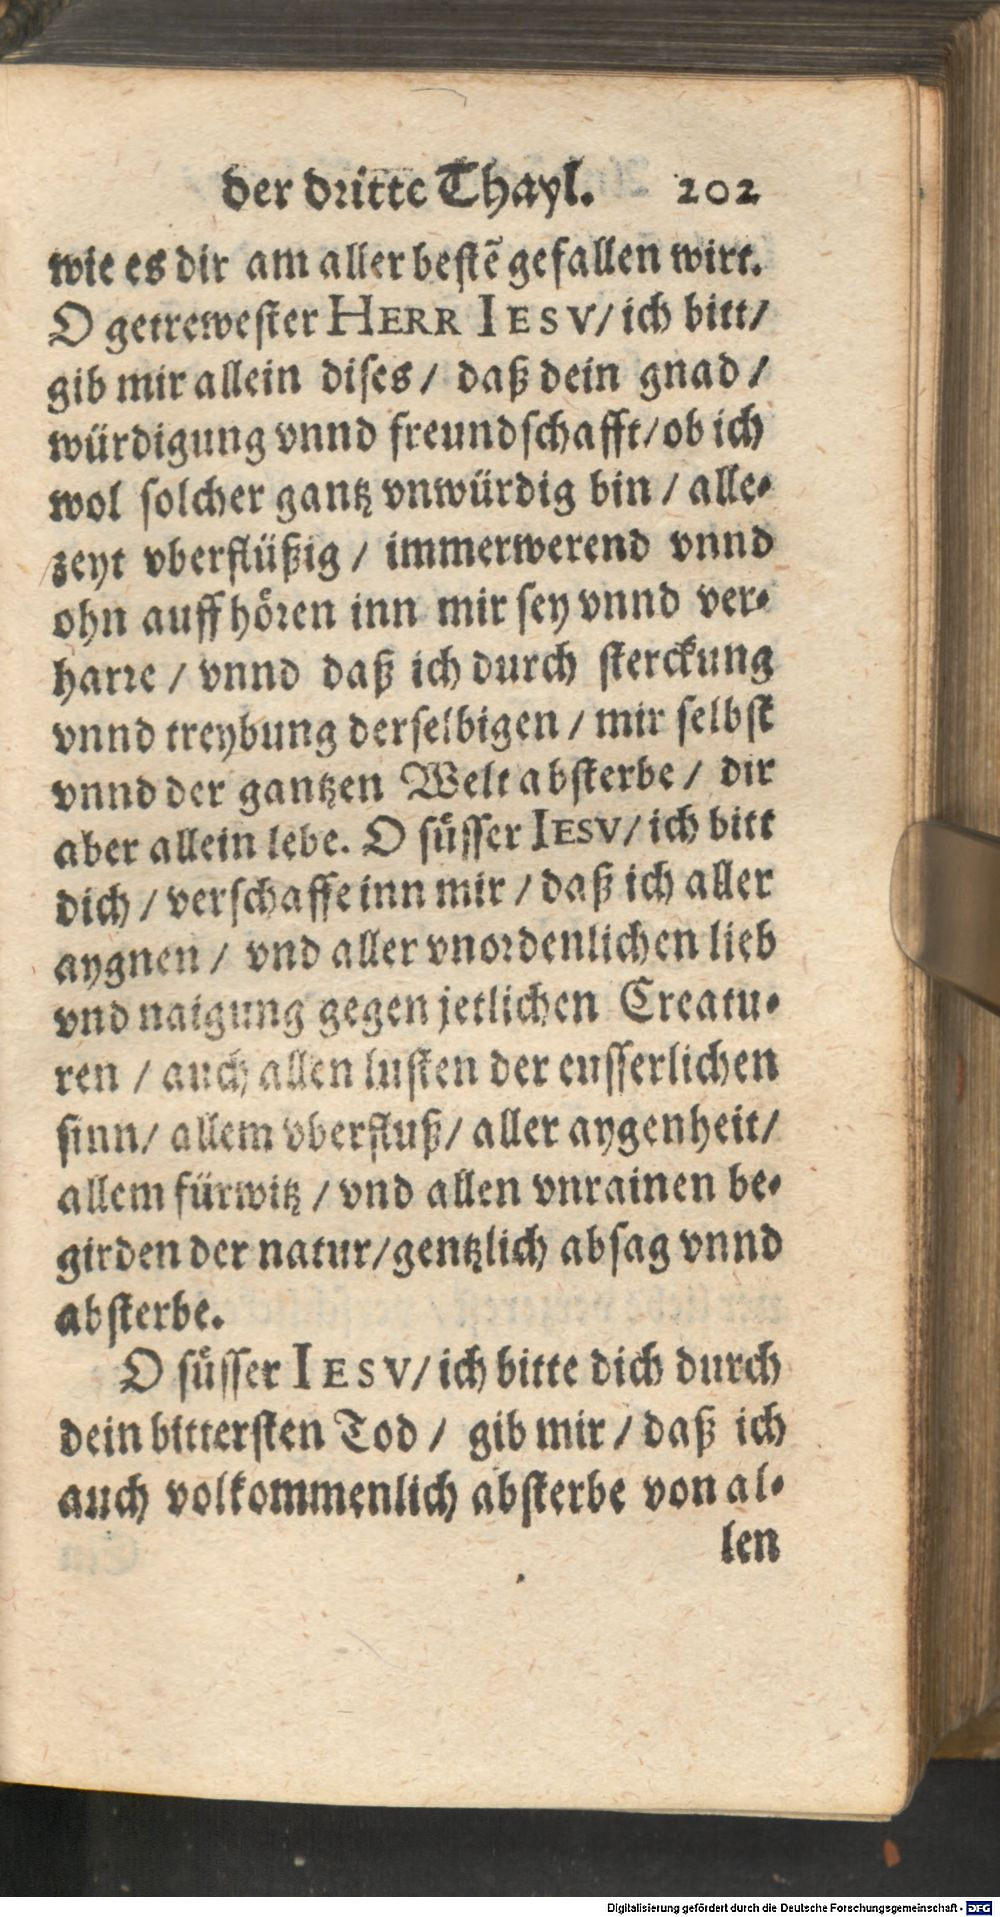 der dritte Thayl. 202
wie es dir am aller bestẽ gefallen wirt.
O getrewester HERR IESV/ ich bitt/
gib mir allein dises / daß dein gnad /
würdigung vnnd freundschafft/ ob ich
wol solcher gantz vnwürdig bin / alle-
zeyt vberflüßig / immerwerend vnnd
ohn auffhören inn mir sey vnnd ver-
harre / vnnd daß ich durch sterckung
vnnd treybung derselbigen / mir selbst
vnnd der gantzen Welt absterbe / dir
aber allein lebe. O süsser IESV/ ich bitt
dich / verschaffe inn mir / daß ich aller
aygnen / vnd aller vnordenlichen lieb
vnd naigung gegen jetlichen Creatu-
ren / auch allen lusten der eusserlichen
sinn/ allem vberfluß/ aller aygenheit/
allem fürwitz / vnd allen vnrainen be-
girden der natur/ gentzlich absag vnnd
absterbe.
O süsser IESV/ ich bitte dich durch
dein bittersten Tod / gib mir / daß ich
auch volkommenlich absterbe von al-
len
Digitalisierung gefördert durch die Deutsche Forschungsgemeinschaft - DFG